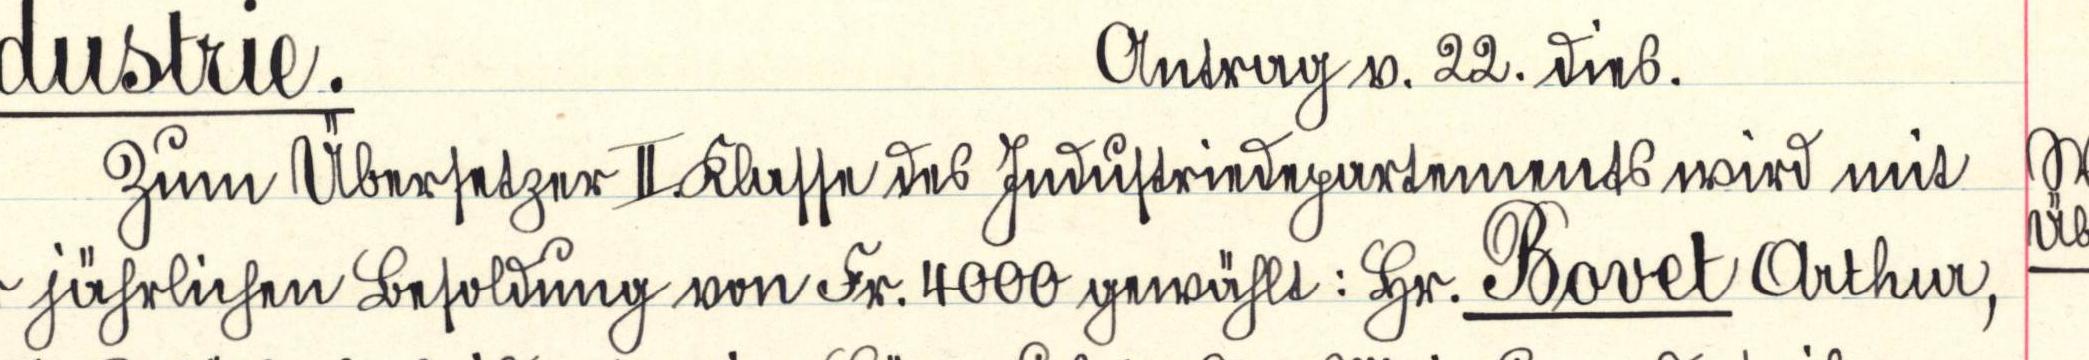 dustrie.
Antrag v. 22. dies.
Zum Übersetzer II. Klasse des Industriedepartements wird mit
r jährlichen Besoldung von Fr. 4000 gewählt: Hr. Bovet Arthur,